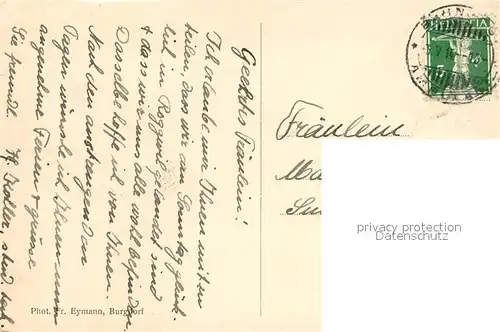 Geehrtes Fräulein!
Ich erlaube mir Ihnen mitzu-
teilen, dass wir am Sonntag glück-
lich in Roggwil gelandet sind
& dass wir uns alle wohl befinden.
Dasselbe hoffe ich von Ihnen.
Nach den anstrengenden
Tagen wünsche ich Ihnen nun
angenehme Ferien & grüsse
Sie freundl.
Phot. Fr. Eymann, Burgdorf
HELVETIA
5
Fräulein
privacy protection
Datenschutz